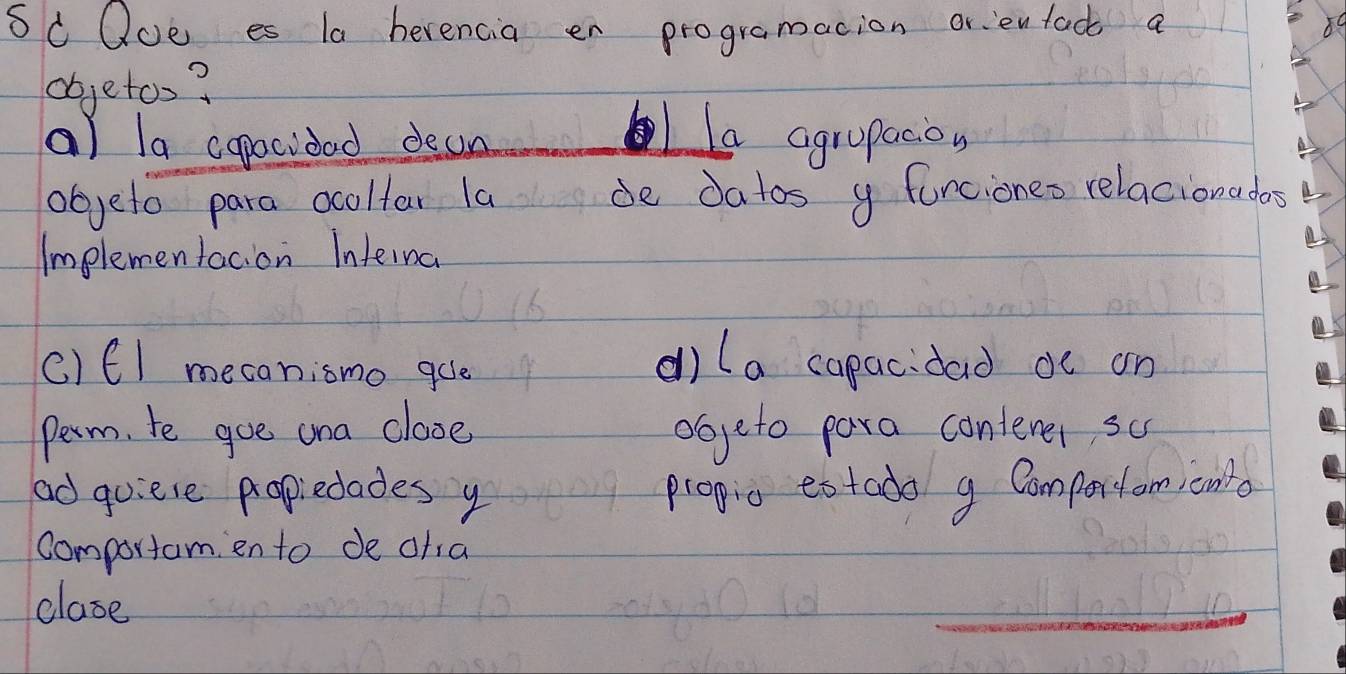 5 ¿ Que es la herencia en programacion orientado a
objetos?
a) la capacidad de un
objeto para ocultar la
Implementacion Interna
b) la agrupación
de datos y funciones relacionadas
c) El mecanismo que
permite que una clase
adquiere propiedades y
comportamiento de otra
clase
d) La capacidad de un
objeto para contener su
propio estado y Comportamiento